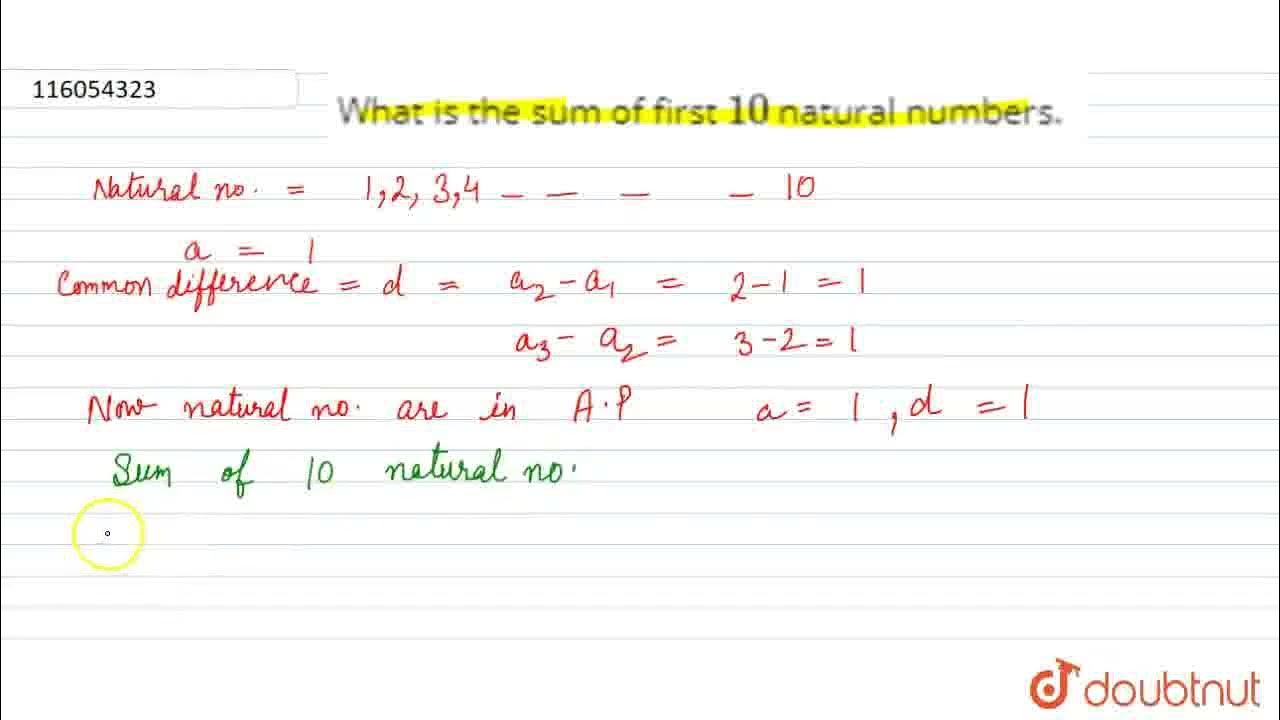 116054323
What is the sum of first 10 natural numbers.
Natural no. = 1, 2, 3, 4 – – – – 10
a = 1
Common difference = d = a₂ – a₁ = 2 – 1 = 1
a₃ – a₂ = 3 – 2 = 1
Now natural no. are in A.P a = 1, d = 1
Sum of 10 natural no.
doubtnut